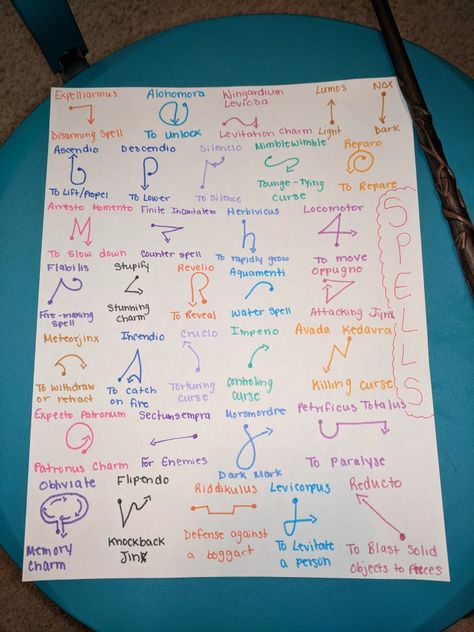 Expelliarmus
Disarming Spell
Alohomora
To unlock
Wingardium
Leviosa
Levitation Charm
Lumos
Light
Nox
Dark
Ascendio
To Lift/Propel
Descendio
To Lower
Silencio
To Silence
Mimblewimble
Tounge-Tying
curse
Reparo
To Repare
Arresto Momento
To slow down
Finite Incantatem
Counter spell
Herbivicus
To rapidly grow
Locomotor
To move
Flabilis
Fire-making
spell
Stupify
Stunning
charm
Revelio
To Reveal
Aquamenti
Water Spell
oppugno
Attacking Jynx
Meteorjinx
To withdraw
or retract
Incendio
To catch
on fire
Crucio
Torturing
curse
Imperio
Controling
curse
Avada Kedavra
Killing curse
Expecto Patronum
Patronus Charm
Sectumsempra
For Enemies
Morsmordre
Dark Mark
Petrificus Totalus
To Paralyse
Obliviate
Memory
Charm
Flipendo
Knockback
Jinx
Riddikulus
Defense against
a boggart
Levicorpus
To Levitate
a person
Reducto
To Blast Solid
Objects to Pieces
SPELLS